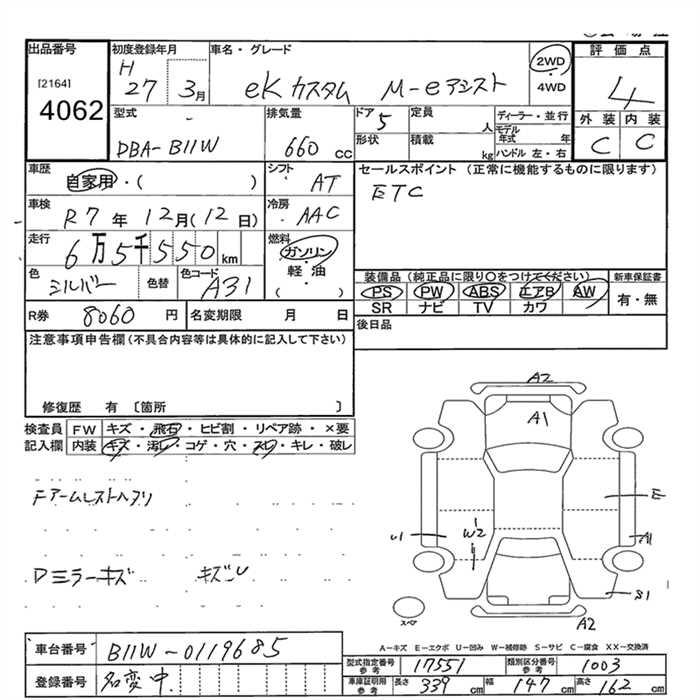 出品番号
[2164]
4062
初度登録年月
H 27 3月
車名・グレード
eKカスタム M-eアシスト
2WD
・
4WD
評価点
4
外装 内装
C C
型式
DBA-B11W
排気量
660 cc
ドア
5
形状
定員
人
積載
kg
ディーラー・並行
モデル年式 年
ハンドル 左・右
車歴
自家用・( )
シフト
AT
セールスポイント (正常に機能するものに限ります)
ETC
車検
R7年12月(12日)
冷房
AAC
走行
6万5千550km
燃料
ガソリン
・
軽油
( ・ )
色
シルバー
色替
色コード
A31
装備品(純正品に限り○をつけてください)
PS PW ABS エアB AW
SR ナビ TV カワ
新車保証書
有・無
R券 8060 円
名変期限 月 日
後日品
注意事項申告欄(不具合内容等は具体的に記入して下さい)
修復歴 有 〔箇所 〕
検査員記入欄
FW キズ・飛石・ヒビ割・リペア跡・×要
内装 キズ・汚レ・コゲ・穴・スレ・キレ・破レ
Fアームレストヘタリ
Dミラーキズ キズU
A2
A1
E
A1
U1
W2
S1
A2
スペア
A-キズ E-エクボ U-凹み W-補修跡 S-サビ C-腐食 XX-交換済
車台番号 B11W-0119685
登録番号 名変中
型式指定番号 参考 17551
類別区分番号 参考 1003
車庫証明用 参考 長さ 339 cm 幅 147 cm 高さ 162 cm